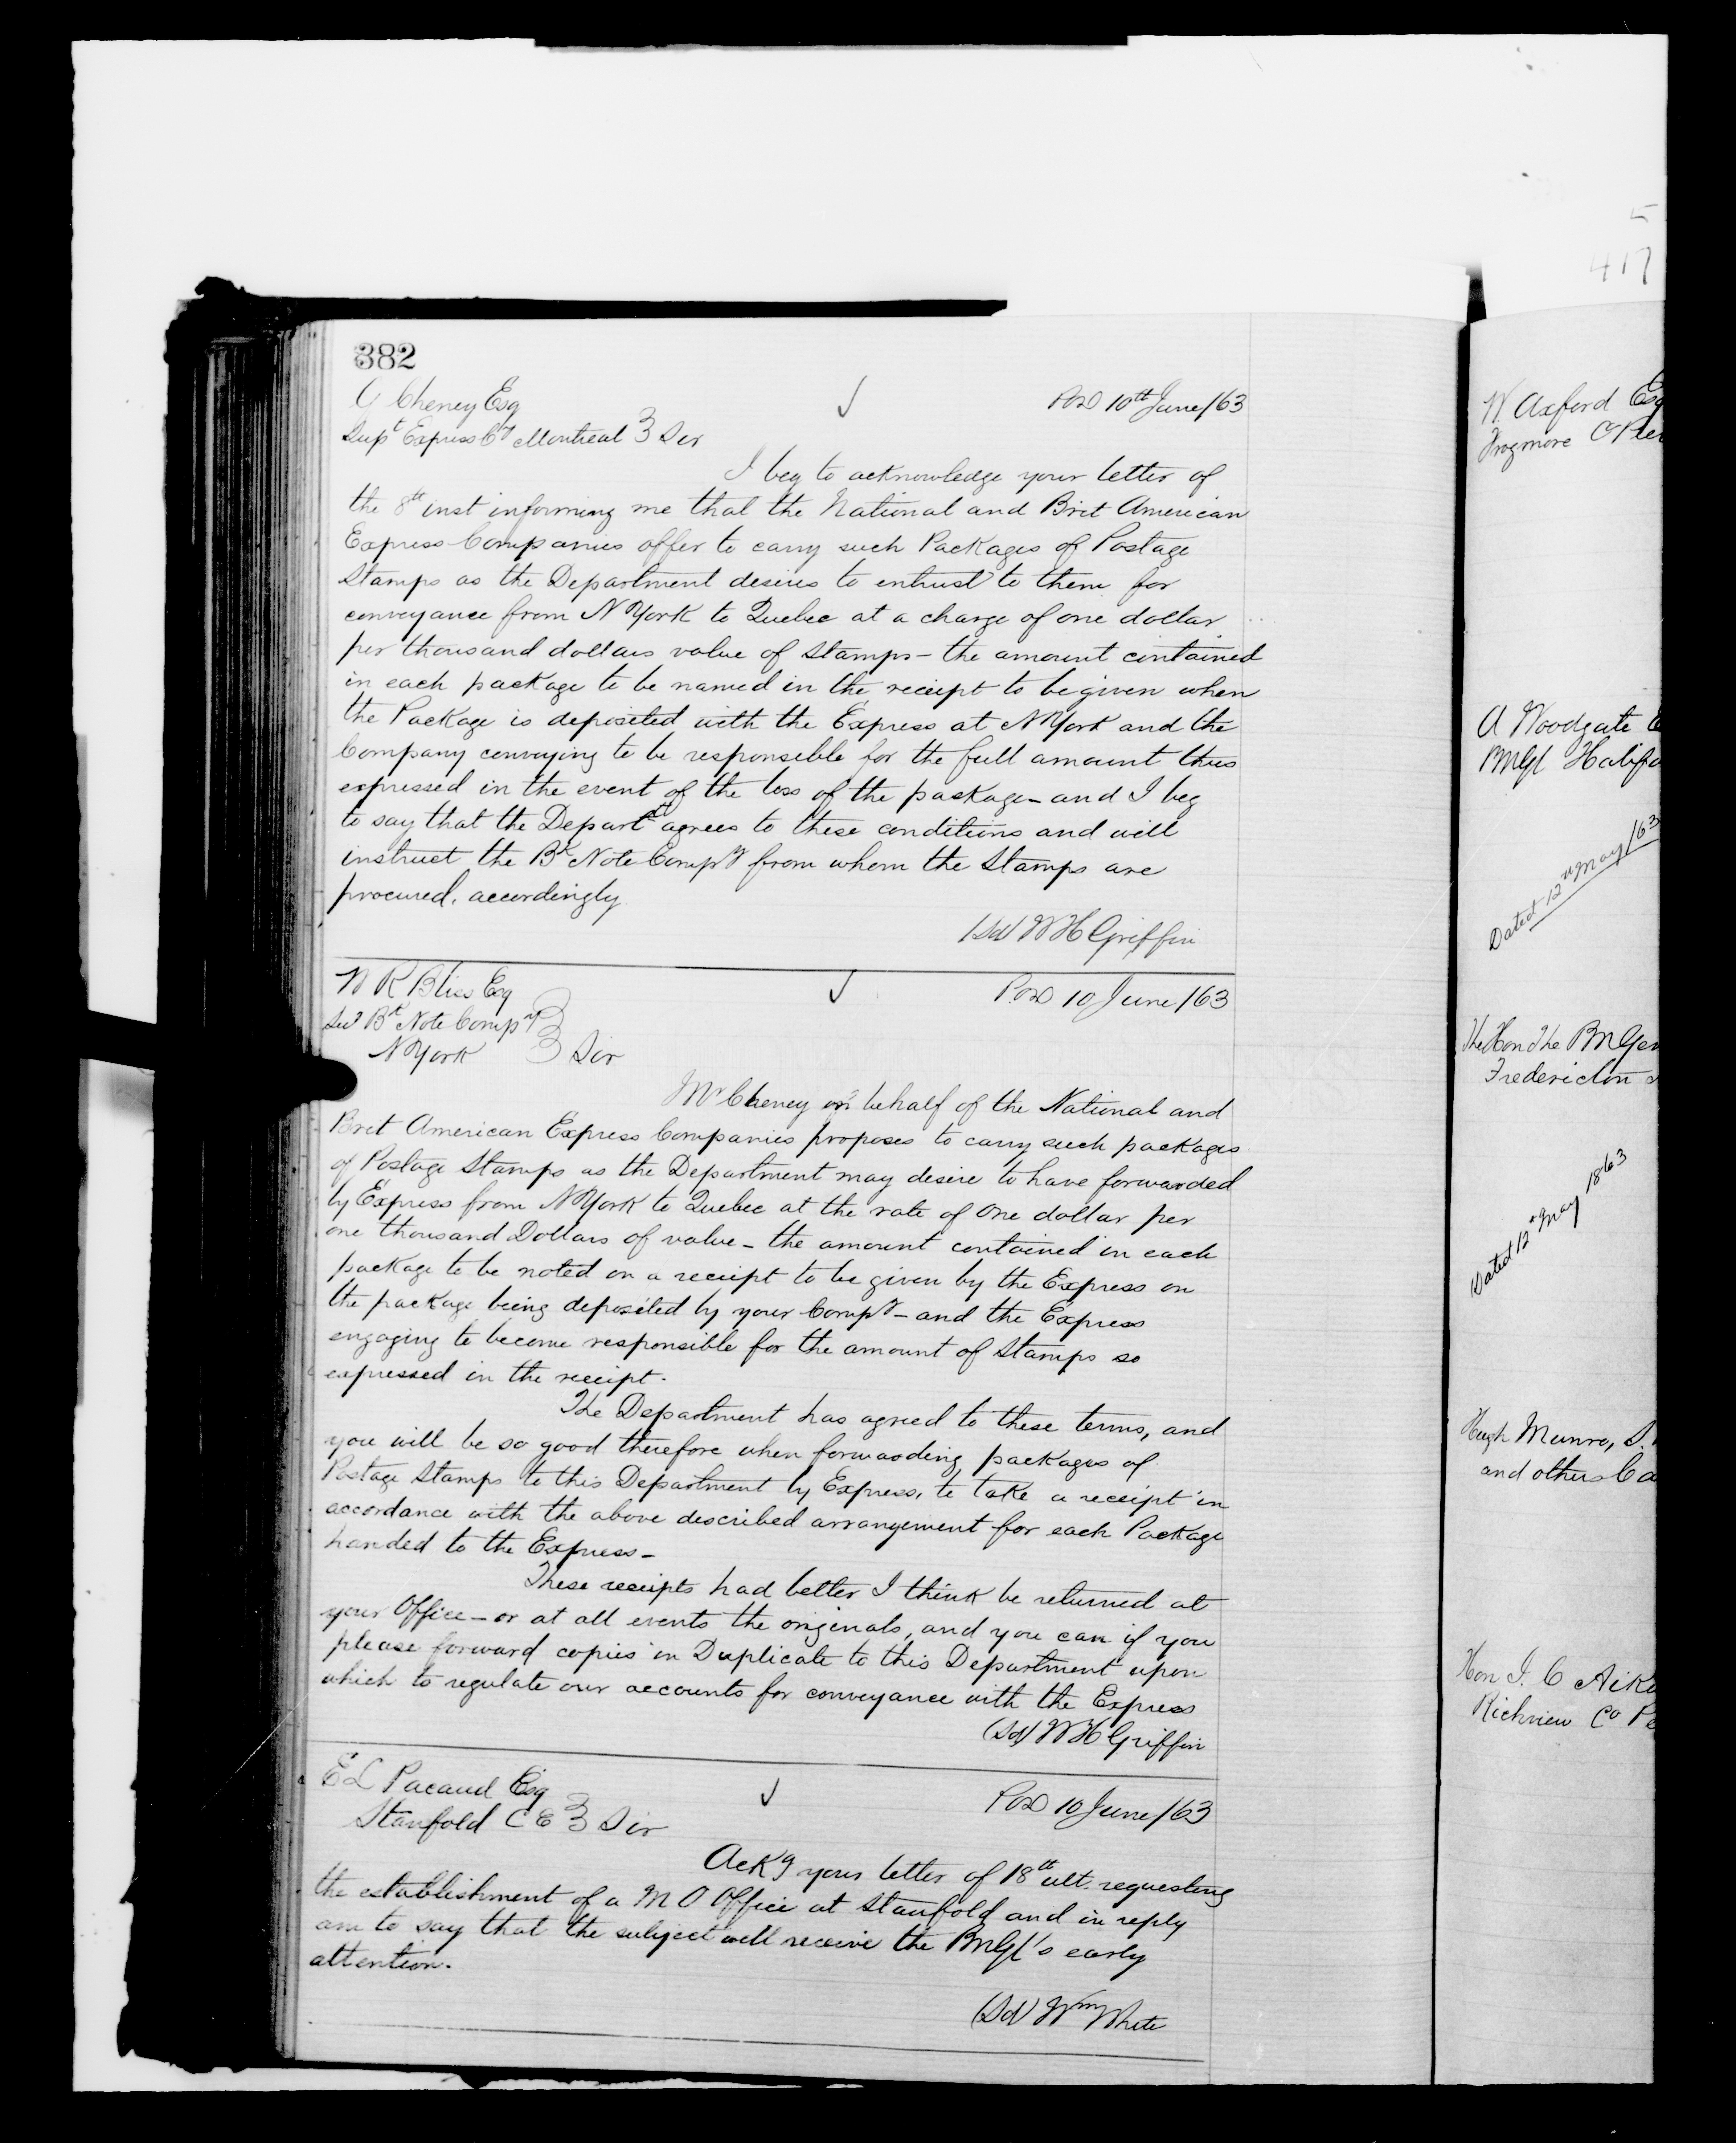 382
G Cheney Esq
Supt Express Co Montreal } Sir
POD 10th June/63
I beg to acknowledge your letter of
the 8th inst informing me that the National and Brit American
Express Companies offer to carry such Packages of Postage
Stamps as the Department desires to entrust to them for
conveyance from N York to Quebec at a charge of one dollar
per thousand dollars value of Stamps - the amount contained
in each package to be named in the receipt to be given when
the Package is deposited with the Express at N York and the
Company conveying to be responsible for the full amount thus
expressed in the event of the loss of the package - and I beg
to say that the Depart't agrees to these conditions and will
instruct the Bk Note Compy from whom the Stamps are
procured, accordingly
(Sd) W H Griffin
N R Bliss Esq
Secy Bk Note Compy
N York } Sir
P.O.D 10 June/63
Mr Cheney on behalf of the National and
Brit American Express Companies proposes to carry such packages
of Postage Stamps as the Department may desire to have forwarded
by Express from N York to Quebec at the rate of One dollar per
one thousand Dollars of value - the amount contained in each
package to be noted on a receipt to be given by the Express on
the package being deposited by your Compy - and the Express
engaging to become responsible for the amount of Stamps so
expressed in the receipt.
The Department has agreed to these terms, and
you will be so good therefore when forwarding packages of
Postage Stamps to this Department by Express, to take a receipt in
accordance with the above described arrangement for each Package
handed to the Express -
These receipts had better I think be returned at
your Office - or at all events the originals, and you can if you
please forward copies in Duplicate to this Department upon
which to regulate our accounts for conveyance with the Express
(Sd) W H Griffin
E L Pacaud Esq
Stanfold C E } Sir
POD 10 June/63
Ackg your letter of 18th ult. requesting
the establishment of a M O Office at Stanfold and in reply
am to say that the subject will receive the PMGl's early
attention.
(Sd) Wm White
5
417
W. Axford Esq
Frogmore
A Woodgate
PMGl Halifa
Dated 12th May/63
The Hon The PMGen
Fredericton
Dated 12th May 1863
Hugh Munro,
and others Ca
Hon J. C Aik
Richview Co Pe